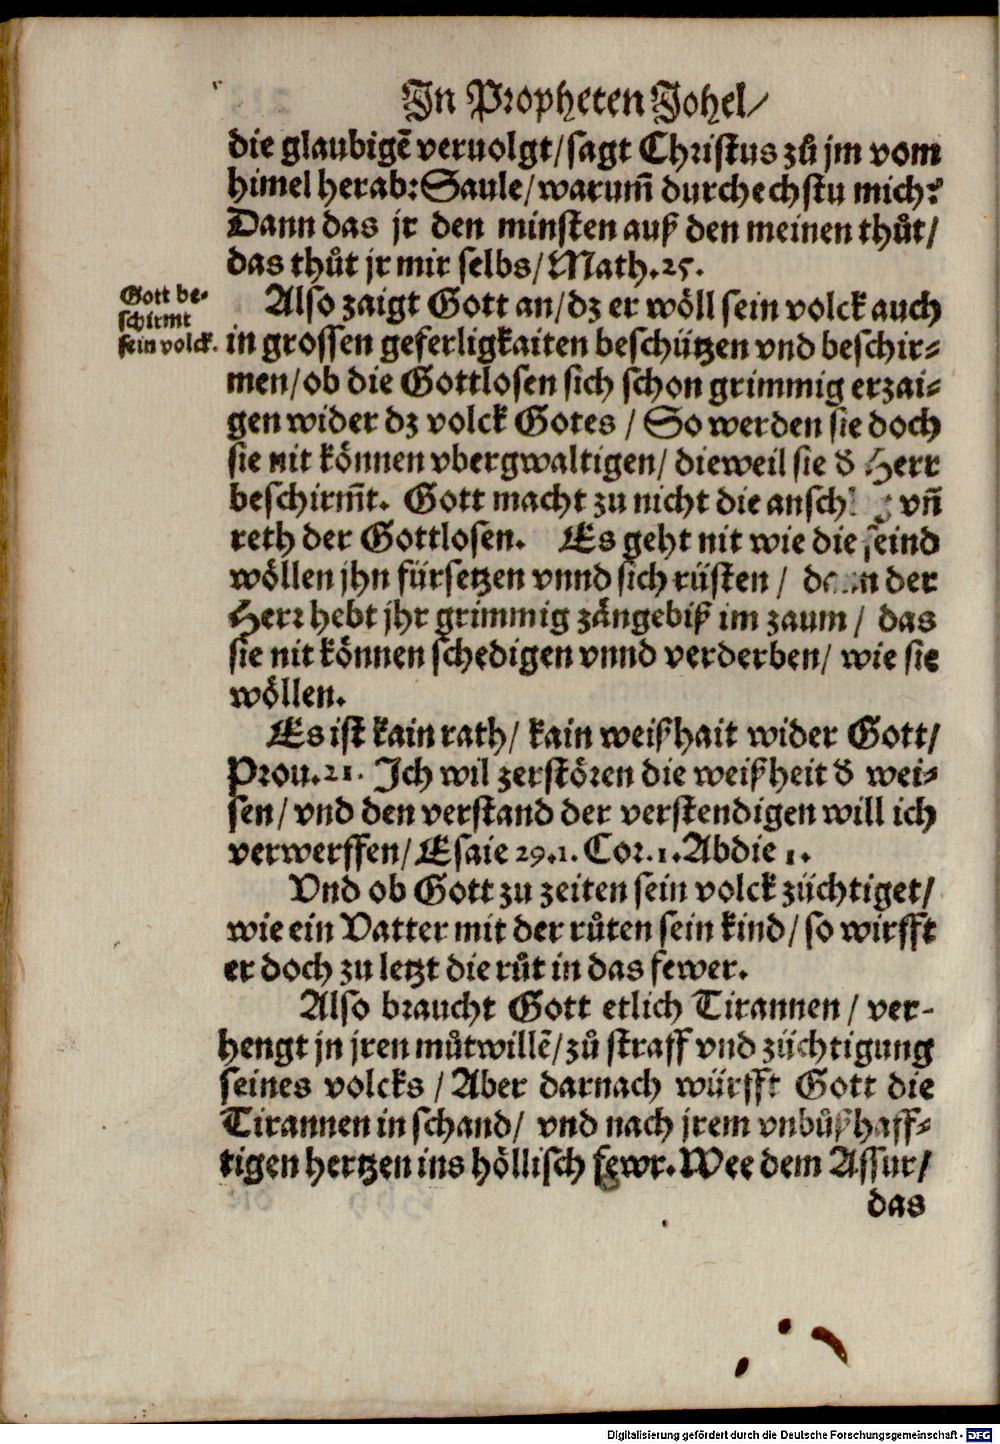 In Propheten Johel/
die glaubigē veruolgt/sagt Christus zů jm vom
himel herab: Saule/warum̄ durchechstu mich?
Dann das jr den minsten auß den meinen thůt/
das thůt jr mir selbs/Math.25.
Gott be-
schirmt
sein volck.
Also zaigt Gott an/dz er wöll sein volck auch
in grossen geferligkaiten beschützen vnd beschir-
men/ob die Gottlosen sich schon grimmig erzai-
gen wider dz volck Gotes / So werden sie doch
sie nit können vbergwaltigen/ dieweil sie d Herr
beschirm̄t. Gott macht zu nicht die vn̄
reth der Gottlosen. Es geht nit wie die feind
wöllen jhn fürsetzen vnnd sich rüsten / dann der
Herr hebt jhr grimmig zängebiß im zaum / das
sie nit können schedigen vnnd verderben/ wie sie
wöllen.
Es ist kain rath/ kain weißhait wider Gott/
Prou.21. Ich wil zerstören die weißheit d wei-
sen/ vnd den verstand der verstendigen will ich
verwerffen/ Esaie 29.1. Cor.1. Abdie 1.
Vnd ob Gott zu zeiten sein volck züchtiget/
wie ein Vatter mit der růten sein kind/ so wirfft
er doch zu letzt die růt in das fewer.
Also braucht Gott etlich Tirannen / ver-
hengt jn jren můtwillē/zů straff vnd züchtigung
seines volcks / Aber darnach würfft Gott die
Tirannen in schand/ vnd nach jrem vnbůßhaff-
tigen hertzen ins höllisch fewr. Wee dem Assur/
das
Digitalisierung gefördert durch die Deutsche Forschungsgemeinschaft - DFG